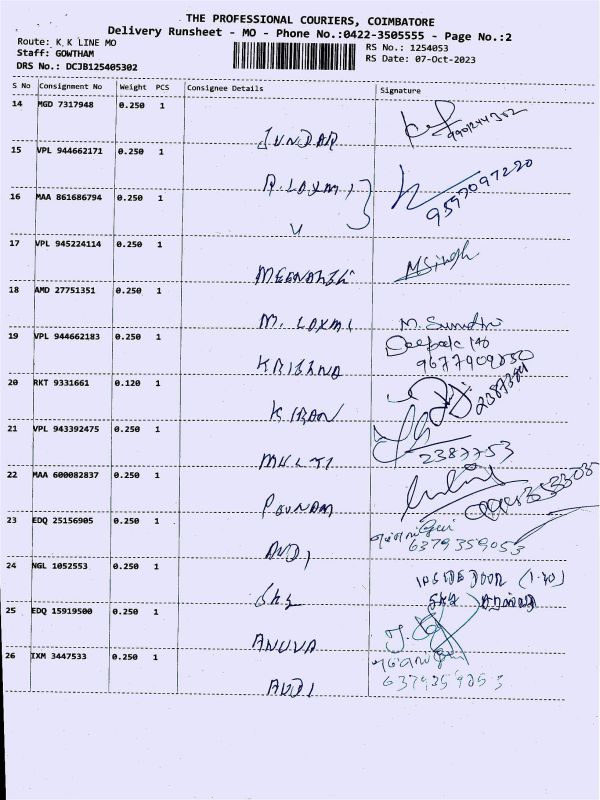 THE PROFESSIONAL COURIERS, COIMBATORE
Delivery Runsheet - MO - Phone No.:0422-3505555 - Page No.:2
Route: K K LINE MO
Staff: GOWTHAM
DRS No.: DCJB125405302
RS No.: 1254053
RS Date: 07-Oct-2023
S No Consignment No Weight PCS Consignee Details Signature
14 MGD 7317948 0.250 1
SUNDAR
15 VPL 944662171 0.250 1
R. LAXMI
9597097220
16 MAA 861686794 0.250 1
17 VPL 945224114 0.250 1
MSingh
18 AMD 27751351 0.250 1
M. LAXMI
19 VPL 944662183 0.250 1
KRISHNA
Deepak
9677909850
20 RKT 9331661 0.120 1
KIRAN
21 VPL 943392475 0.250 1
MULTI
2387753
22 MAA 600082837 0.250 1
POUNAM
23 EDQ 25156905 0.250 1
AUDI
6379359053
24 NGL 1052553 0.250 1
SKS
INSIDE DOOR (1.40)
25 EDQ 15919500 0.250 1
ANUVA
26 IXM 3447533 0.250 1
AUDI
6379359053